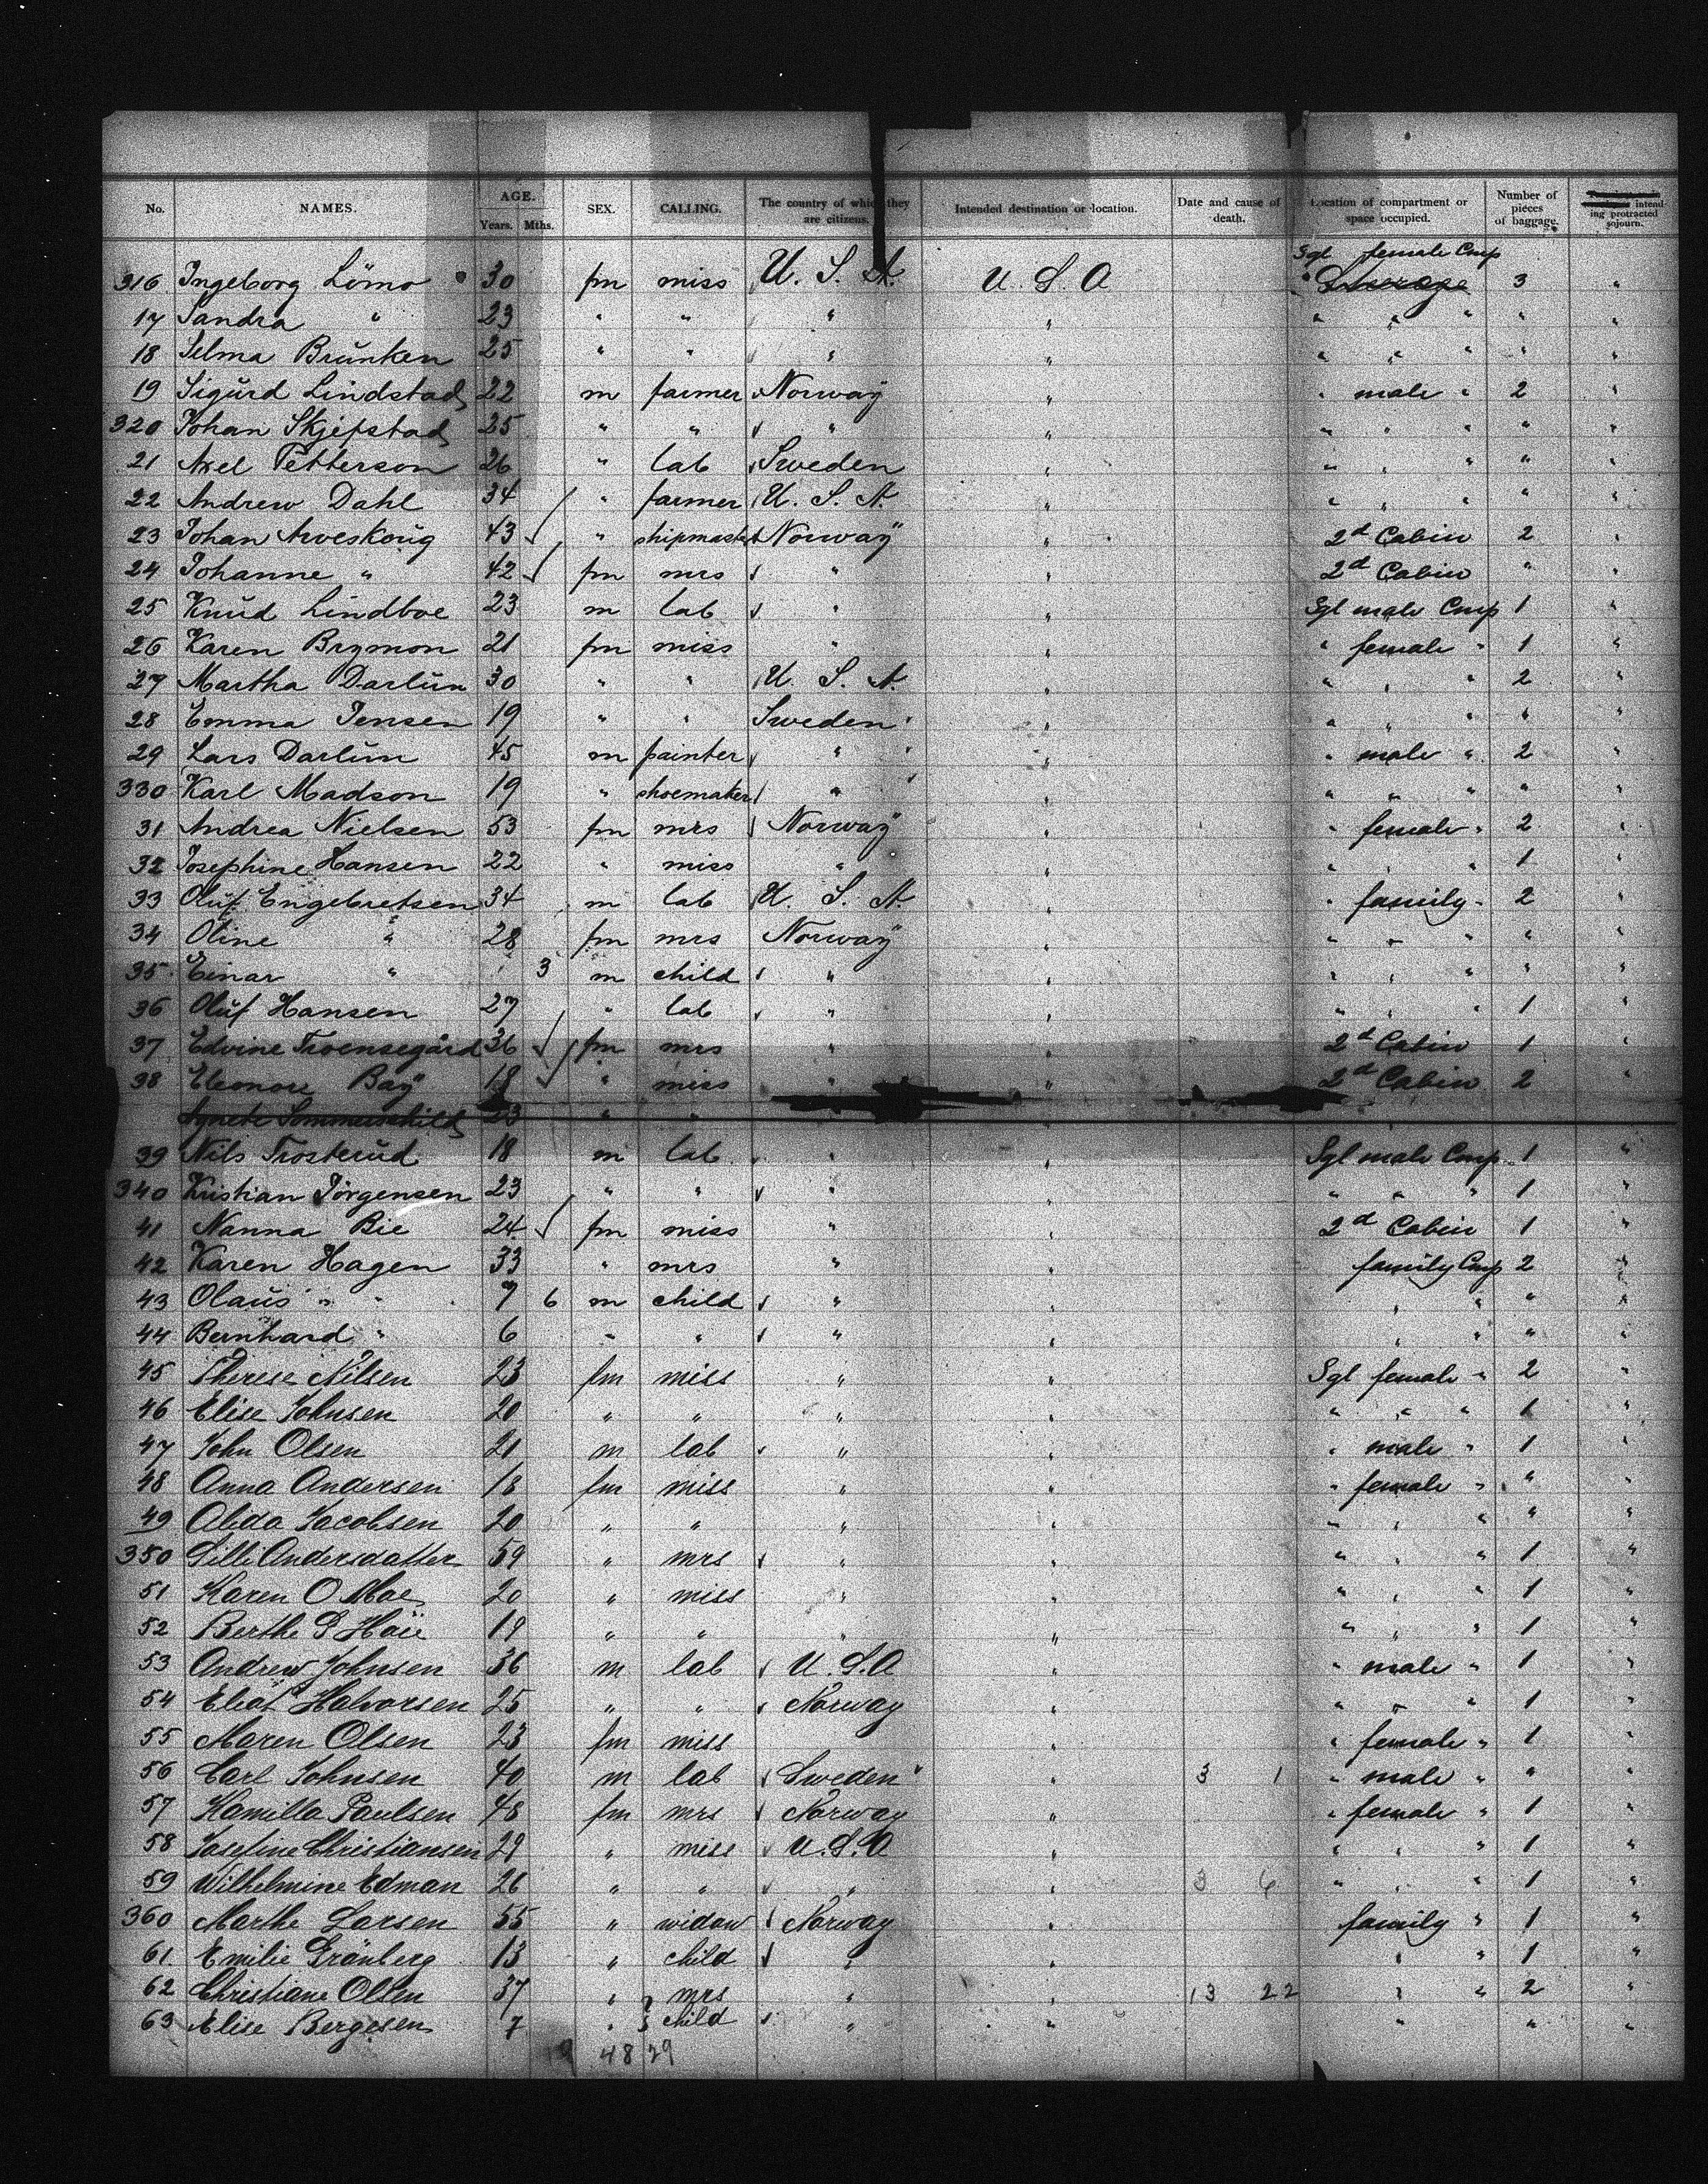 No. NAMES. AGE. Years. Mths. SEX. CALLING. The country of which they are citizens. Intended destination or location. Date and cause of death. Location of compartment or space occupied. Number of pieces of baggage. intending protracted sojourn.
Sgl female Cmp
316 Ingeborg Lömo 30 fm miss U. S. A. U. S. A 3 "
17 Sandra " 23 " " " " " " " " "
18 Selma Brunken 25 " " " " " " " " "
19 Sigurd Lindstad 22 m farmer Norway " " male " 2 "
320 Johan Skjefstad 25 " " " " " " " " "
21 Axel Petterson 26 " lab Sweden " " " " " "
22 Andrew Dahl 34 " farmer U. S. A. " " " " " "
23 Johan Arveskoug 43 " shipmaster Norway " 2d Cabin 2 "
24 Johanne " 42 fm mrs " " 2d Cabin " "
25 Knud Lindboe 23 m lab " " Sgl male Cmp 1 "
26 Karen Brymon 21 fm miss " " " female " 1 "
27 Martha Darlun 30 " " U. S. A. " " " " 2 "
28 Emma Jensen 19 " " Sweden " " " " " "
29 Lars Darlun 45 m painter " " " male " 2 "
330 Karl Madson 19 " shoemaker " " " " " " "
31 Andrea Nielsen 53 fm mrs Norway " " female " 2 "
32 Josephine Hansen 22 " miss " " " " " 1 "
33 Oluf Engebretsen 34 m lab U. S. A. " " family " 2 "
34 Oline " 28 fm mrs Norway " " " " " "
35 Einar " 3 m child " " " " " " "
36 Oluf Hansen 27 " lab " " " " " 1 "
37 Edvine Troensegård 36 fm mrs " " 2d Cabin 1 "
38 Eleonore Bay 18 " miss " " 2d Cabin 2 "
Agnete Sommerschild 23 " "
39 Nils Trosterud 18 m lab " " Sgl male Cmp 1 "
340 Kristian Jörgensen 23 " " " " " " " 1 "
41 Nanna Bie 24 fm miss " " 2d Cabin 1 "
42 Karen Hagen 33 " mrs " " family Cmp 2 "
43 Olaus " 7 6 m child " " " " " "
44 Bernhard " 6 " " " " " " " "
45 Therese Nilsen 23 fm miss " " Sgl female " 2 "
46 Elise Johnsen 20 " " " " " " " 1 "
47 John Olsen 21 m lab " " " male " 1 "
48 Anna Andersen 18 fm miss " " " female " " "
49 Alida Jacobsen 20 " " " " " " " " "
350 Lille Andersdatter 59 " mrs " " " " " 1 "
51 Karen O Moe 20 " miss " " " " " 1 "
52 Berthe 19 " " " " " " " 1 "
53 Andrew Johnsen 36 m lab U. S. A " " male " 1 "
54 Halvorsen 25 " " Norway " " " " 1 "
55 Maren Olsen 23 fm miss " " female " 1 "
56 Carl Johnsen 40 m lab Sweden " 3 1 " male " " "
57 Kamilla Paulsen 48 fm mrs Norway " " female " 1 "
58 Josefine Christiansen 29 " miss U. S. A " " " " 1 "
59 Wilhelmine Edman 26 " " " " 3 6 " " " 1 "
360 Marthe Larsen 55 " widow Norway " family " 1 "
61. Emilie Grönberg 13 " child " " " " 1 "
62 Christiane Olsen 37 " mrs " " 13 22 " " 2 "
63 Elise Bergesen 7 " child " " " " "
48 29